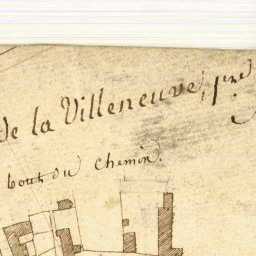 de la Villeneuve, 1.re
bout du Chemin.